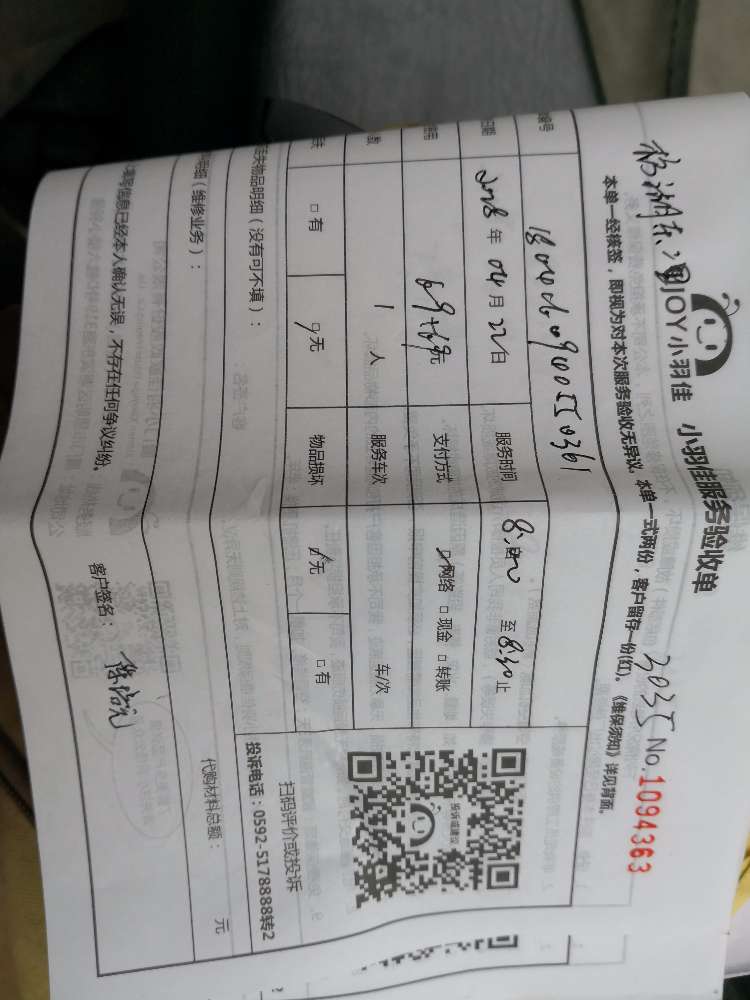 JOY小羽佳 小羽佳服务验收单
3035 No.1094363
本单一经签，即视为对本次服务验收无异议，本单一式两份，客户留存一份(红)。《维保须知》详见背面。
编号
日期 年 04 月 22 日 服务时间 8:00 至 8:30 止
69+69 元 支付方式 网络 □ 现金 □ 转账
数 1 人 服务车次 车/次
□ 有 □ 无 物品损坏 □ 无 □ 有
丢失物品明细（没有可不填）：
明细（维修业务）：
代购材料总额： 元
扫码评价或投诉
投诉电话：0592-5178888转2
投诉或建议
信息已经本人确认无误，不存在任何争议纠纷。
客户签名：